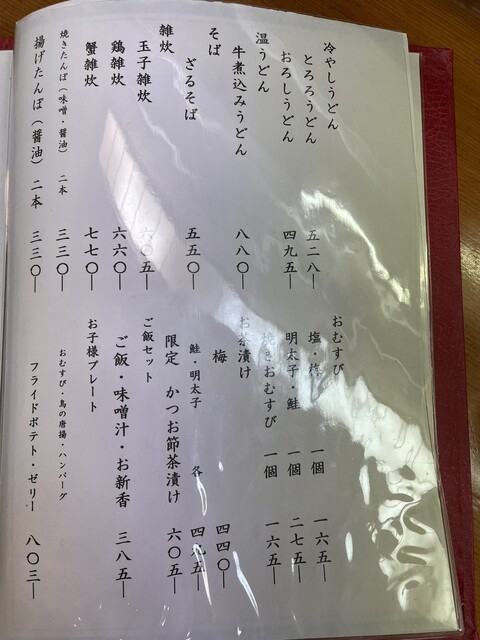 冷やしうどん
とろろうどん 五二八―
おろしうどん 四九五―
温うどん
牛煮込みうどん 八八〇―
そば
ざるそば 五五〇―
雑炊
玉子雑炊 六〇五―
鶏雑炊 六六〇―
蟹雑炊 七七〇―
焼きたんぽ(味噌・醤油) 二本 三三〇―
揚げたんぽ(醤油) 二本 三三〇―
おむすび
塩・梅 一個 一六五―
明太子・鮭 一個 二七五―
焼きおむすび 一個 一六五―
お茶漬け
梅 四四〇―
鮭・明太子 各 四九五―
限定 かつお節茶漬け 六〇五―
ご飯セット
ご飯・味噌汁・お新香 三八五―
お子様プレート
おむすび・鳥の唐揚・ハンバーグ
フライドポテト・ゼリー 八〇三―